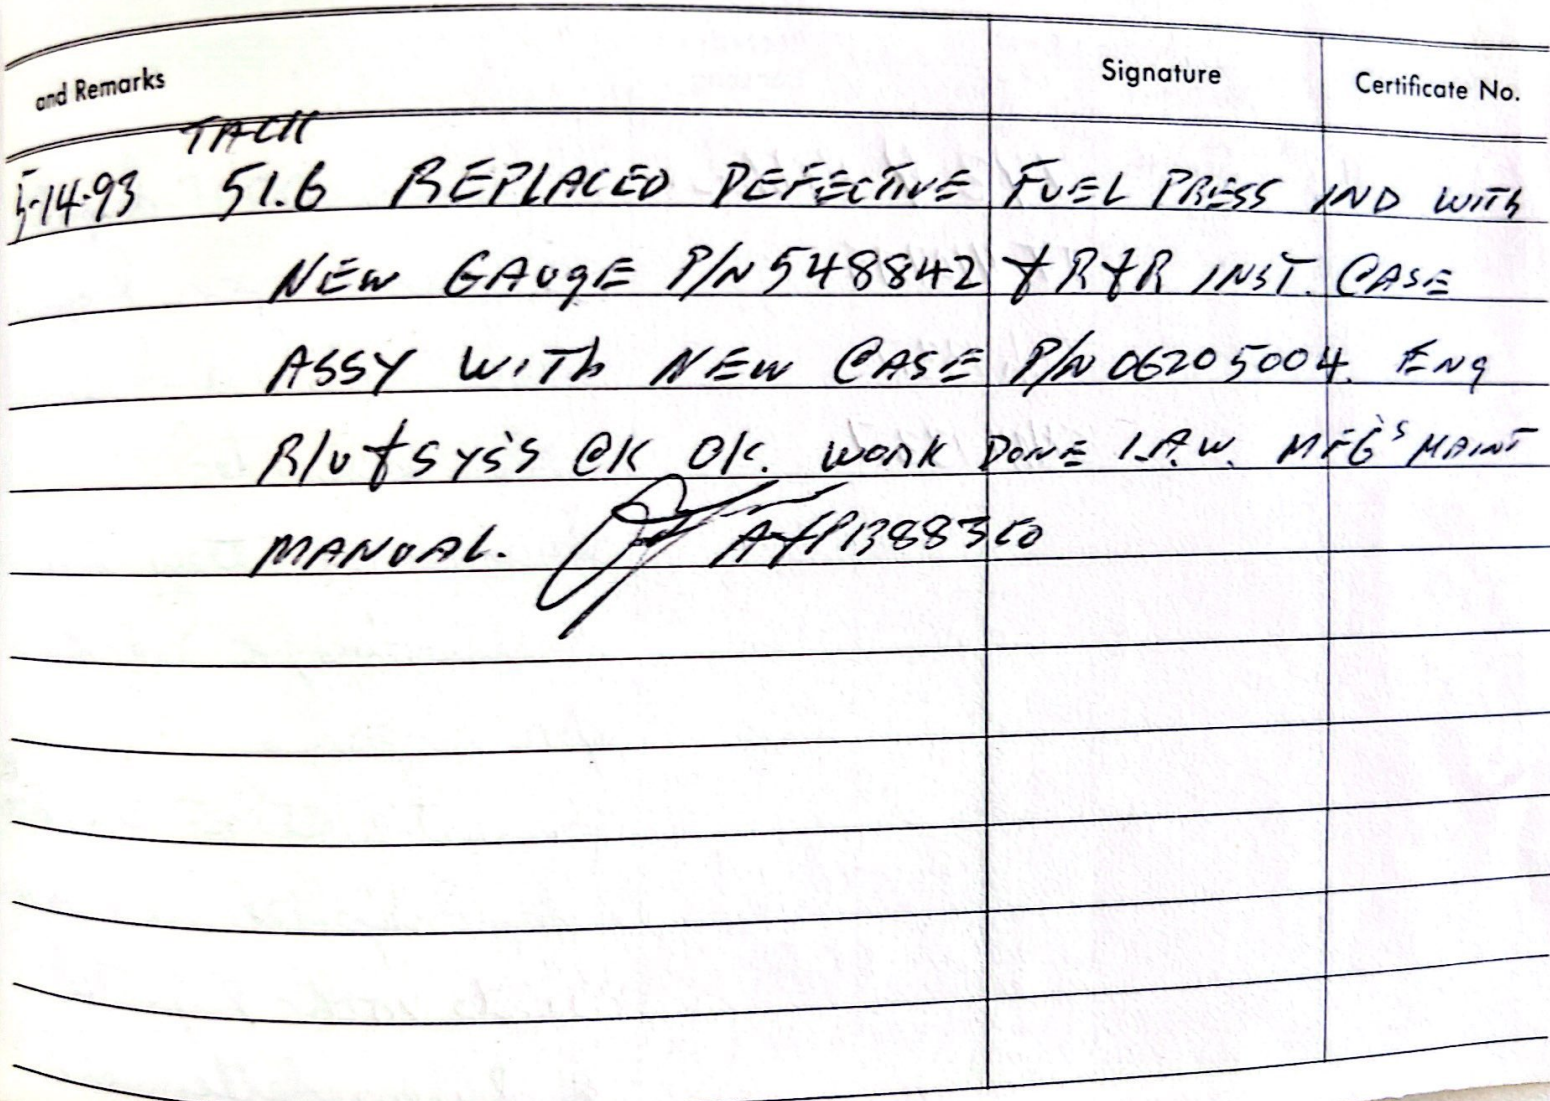 and Remarks Signature Certificate No.
TACH
5-14-93 51.6 REPLACED DEFECTIVE FUEL PRESS IND WITH
NEW GAUgE P/N 548842 & R&R INST. CASE
ASSY WITh NEW CASE P/N 06205004. ENg
R/U & SYS'S CK OK. WORK DONE I.A.W. MFG'S MAINT
MANUAL. A&P1388350